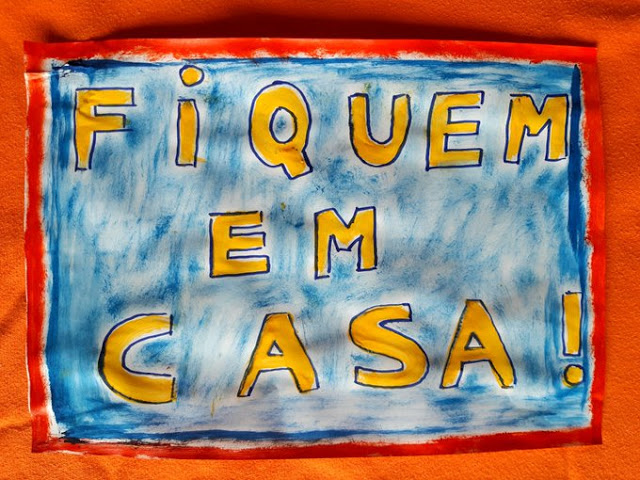 FiQUEM
EM
CASA!